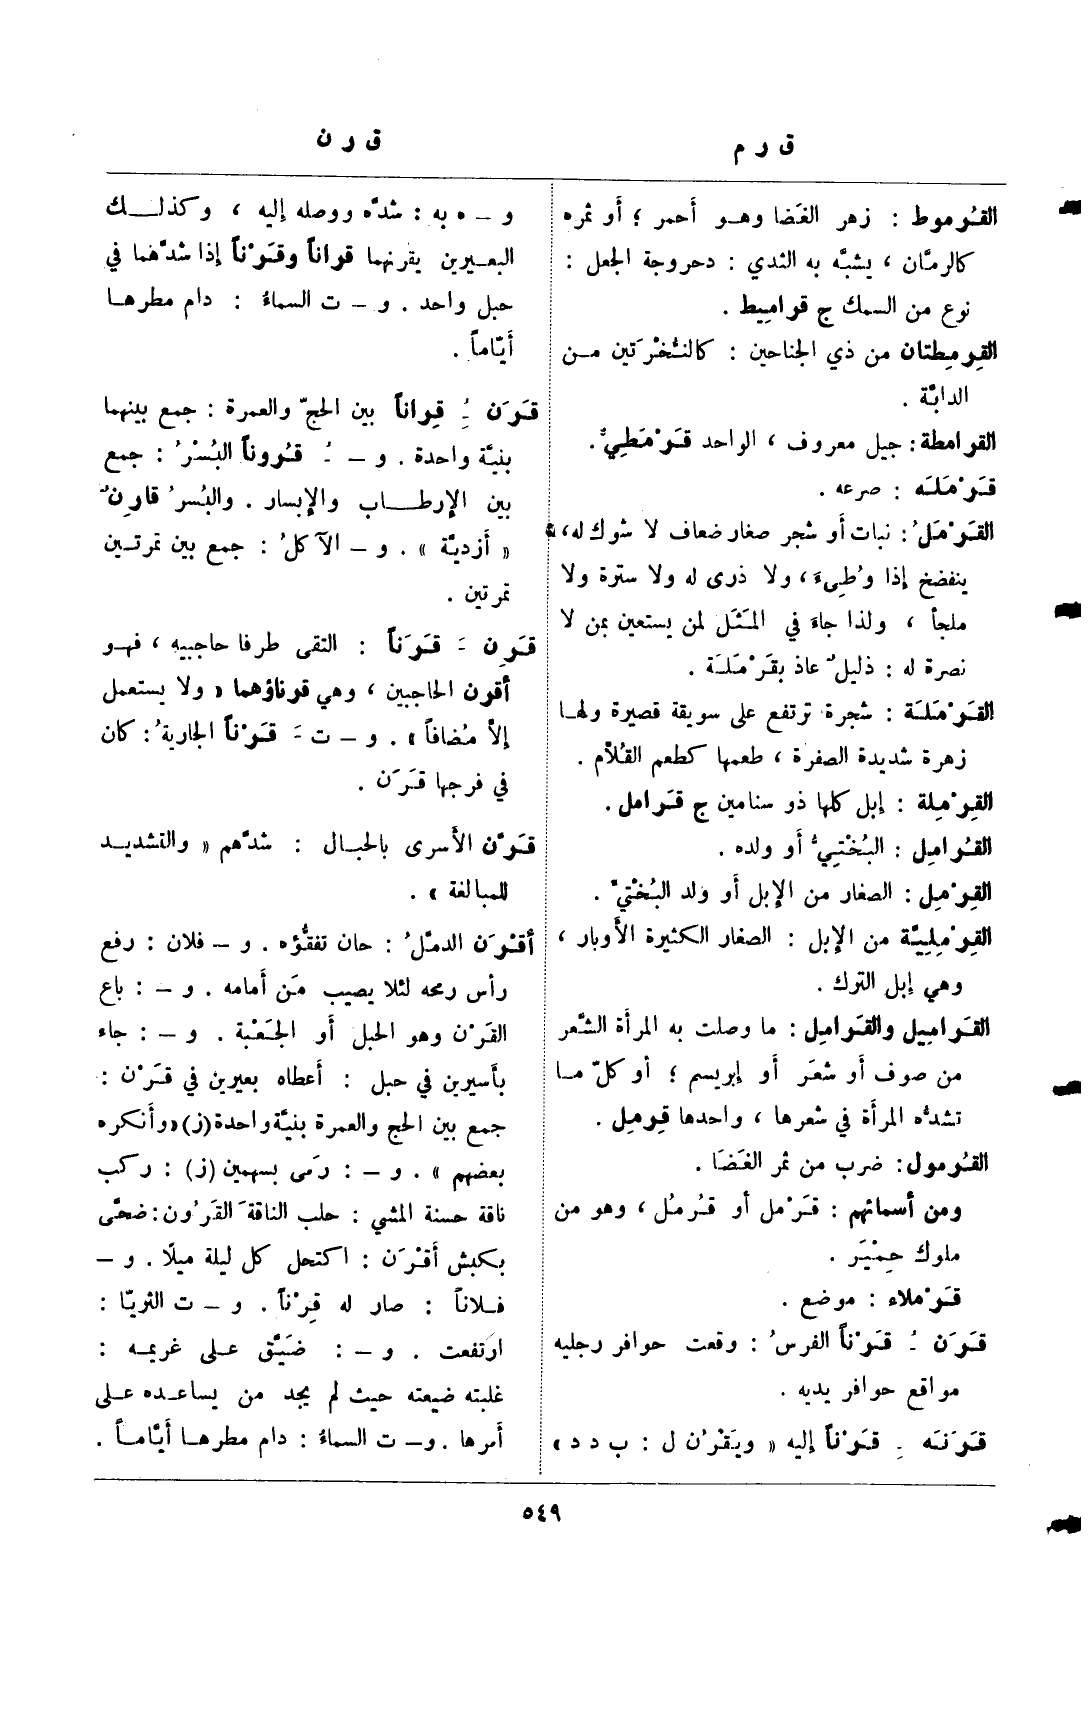 ق ر م
ق ر ن
القُرموط : زهر الغَضا وهو أحمر ؛ أو ثمره
كالرمّان ، يشبَّه به الثدي : دحروجة الجعل :
نوع من السمك ج قراميط .
القِرمِطتان من ذي الجناحين : كالنُّخْرَتين من
الدابَّة .
القرامطة : جيل معروف ، الواحد قَرْمَطِيٌّ .
قَرْمَلَه : صرعه .
القَرْمَلُ : نبات أو شجر صغار ضعاف لا شوك له ،
ينفضخ إذا وُطِيءَ ، ولا ذرى له ولا سترة ولا
ملجأ ، ولذا جاء في المَثَل لمن يستعين بمن لا
نصرة له : ذليلٌ عاذ بقَرْمَلَة .
القَرْمَلَة : شجرة ترتفع على سويقة قصيرة ولها
زهرة شديدة الصفرة ، طعمها كطعم القُلاّم .
القِرْمِلة : إبل كلها ذو سنامين ج قَرامل .
القُرامِل : البُخْتِيُّ أو ولده .
القِرْمِل : الصغار من الإبل أو ولد البُخْتيّ .
القِرْمِلِيَّة من الإبل : الصغار الكثيرة الأوبار ،
وهي إبل الترك .
القَراميل والقَرامِل : ما وصلت به المرأة الشَّعر
من صوف أو شعَر أو إبريسم ؛ أو كلّ ما
تشدُّه المرأة في شعرها ، واحدها قِرمِل .
القُرمول : ضرب من ثمر الغَضَا .
ومن أسمائهم : قَرْمل أو قُرمُل ، وهو من
ملوك حِمْيَر .
قَرْملاء : موضع .
قَرَن ـُ قَرْناً الفرسُ : وقعت حوافر رجليه
مواقع حوافر يديه .
قَرَنَه ـِ قَرْناً إليه « ويَقْرُن ل : ب د د »
و ــ ه به : شدَّه ووصله إليه ، وكذلك
البعيرين يقرنهما قراناً وقَرْناً إذا شدَّهما في
حبل واحد . و ــ ت السماءُ : دام مطرها
أيّاماً .
قَرَن ـُِ قِراناً بين الحجّ والعمرة : جمع بينهما
بنيَّة واحدة . و ــ ـُ قُروناً البُسْرُ : جمع
بين الإرطاب والإبسار . والبُسرُ قارِنٌ
« أزديَّة » . و ــ الآكلُ : جمع بين تمرتين
تمرتين .
قَرِن ـَ قَرَناً : التقى طرفا حاجبيه ، فهو
أقرن الحاجبين ، وهي قرناؤهما « ولا يستعمل
إلاّ مُضافاً » . و ــ ت ـَ قَرْناً الجاريةُ : كان
في فرجها قَرَن .
قَرَّن الأسرى بالحبال : شدَّهم « والتشديد
للمبالغة » .
أقْرَن الدمَّلُ : حان تفقُّؤه . و ــ فلان : رفع
رأس رمحه لئلا يصيب مَن أمامه . و ــ : باع
القَرْن وهو الحبل أو الجَعْبة . و ــ : جاء
بأسيرين في حبل : أعطاه بعيرين في قَرْن :
جمع بين الحج والعمرة بنيَّة واحدة (ز) « وأنكره
بعضهم » . و ــ : رَمى بسهمين (ز) : ركب
ناقة حسنة المشي : حلب الناقةَ القَرُون : ضحَّى
بكبش أقْرَن : اكتحل كل ليلة ميلًا . و ــ
فلاناً : صار له قِرْناً . و ــ ت الثريّا :
ارتفعت . و ــ : ضَيَّق على غريمه :
غلبته ضيعته حيث لم يجد من يساعده على
أمرها . و ــ ت السماءُ : دام مطرها أيَّاماً .
٥٤٩